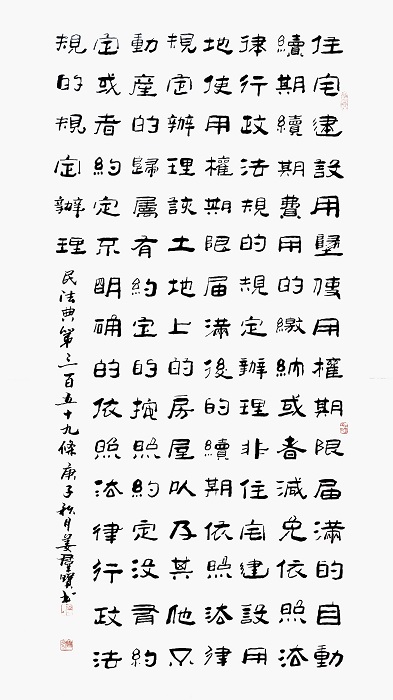 住宅建設用墬使用權期限届滿的自動
續期續期費用的繳納或者減免依照法
律行政法規的規定辦理非住宅建設用
地使用權期限届滿後的續期依照法律
規定辦理該土地上的房屋以及其他不
動產的歸屬有約定的按照約定没有約
定或者約定不明確的依照法律行政法
規的規定辦理
民法典第三百五十九條庚子秋月姜寶书